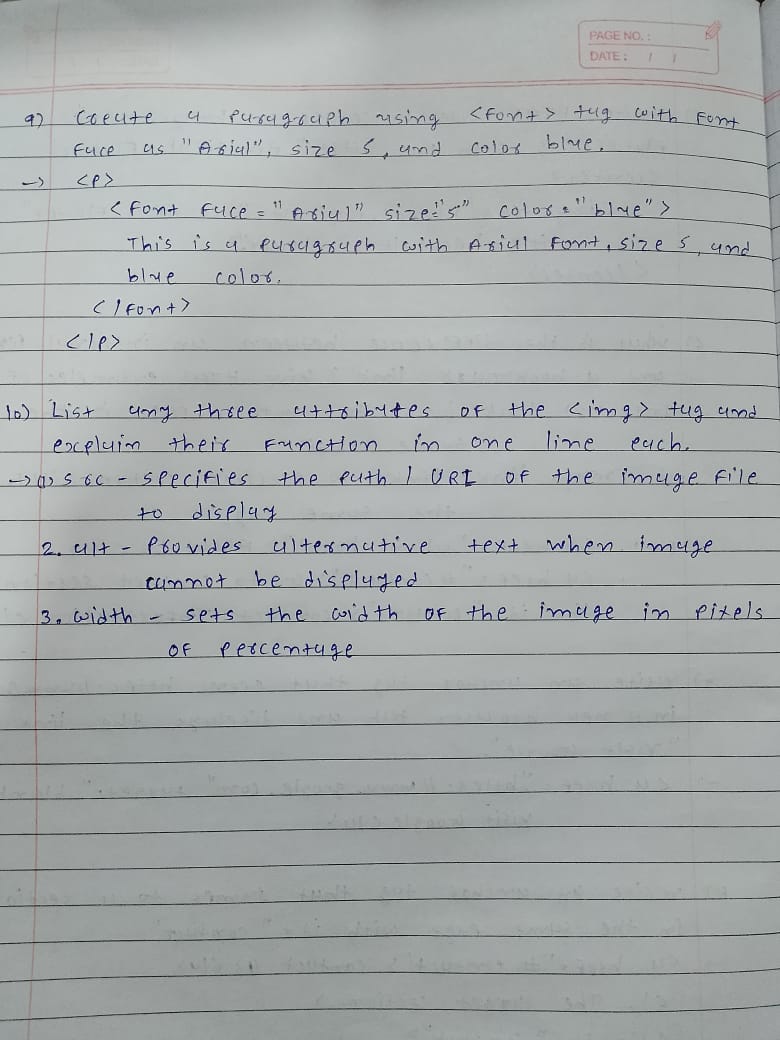 PAGE NO. :
DATE : / /
9) Create a paragraph using <font> tag with Font
Face as "Arial", size 5, and color blue.
→ <P>
<Font Face = "Arial" size="5" color = "blue">
This is a paragraph with Arial Font, size 5, and
blue color.
</font>
</p>
10) List any three attributes of the <img> tag and
explain their Function in one line each.
→ (1) src - specifies the path / URI of the image file
to display
2. alt - Provides alternative text when image
cannot be displayed
3. width - sets the width of the image in pixels
of percentage